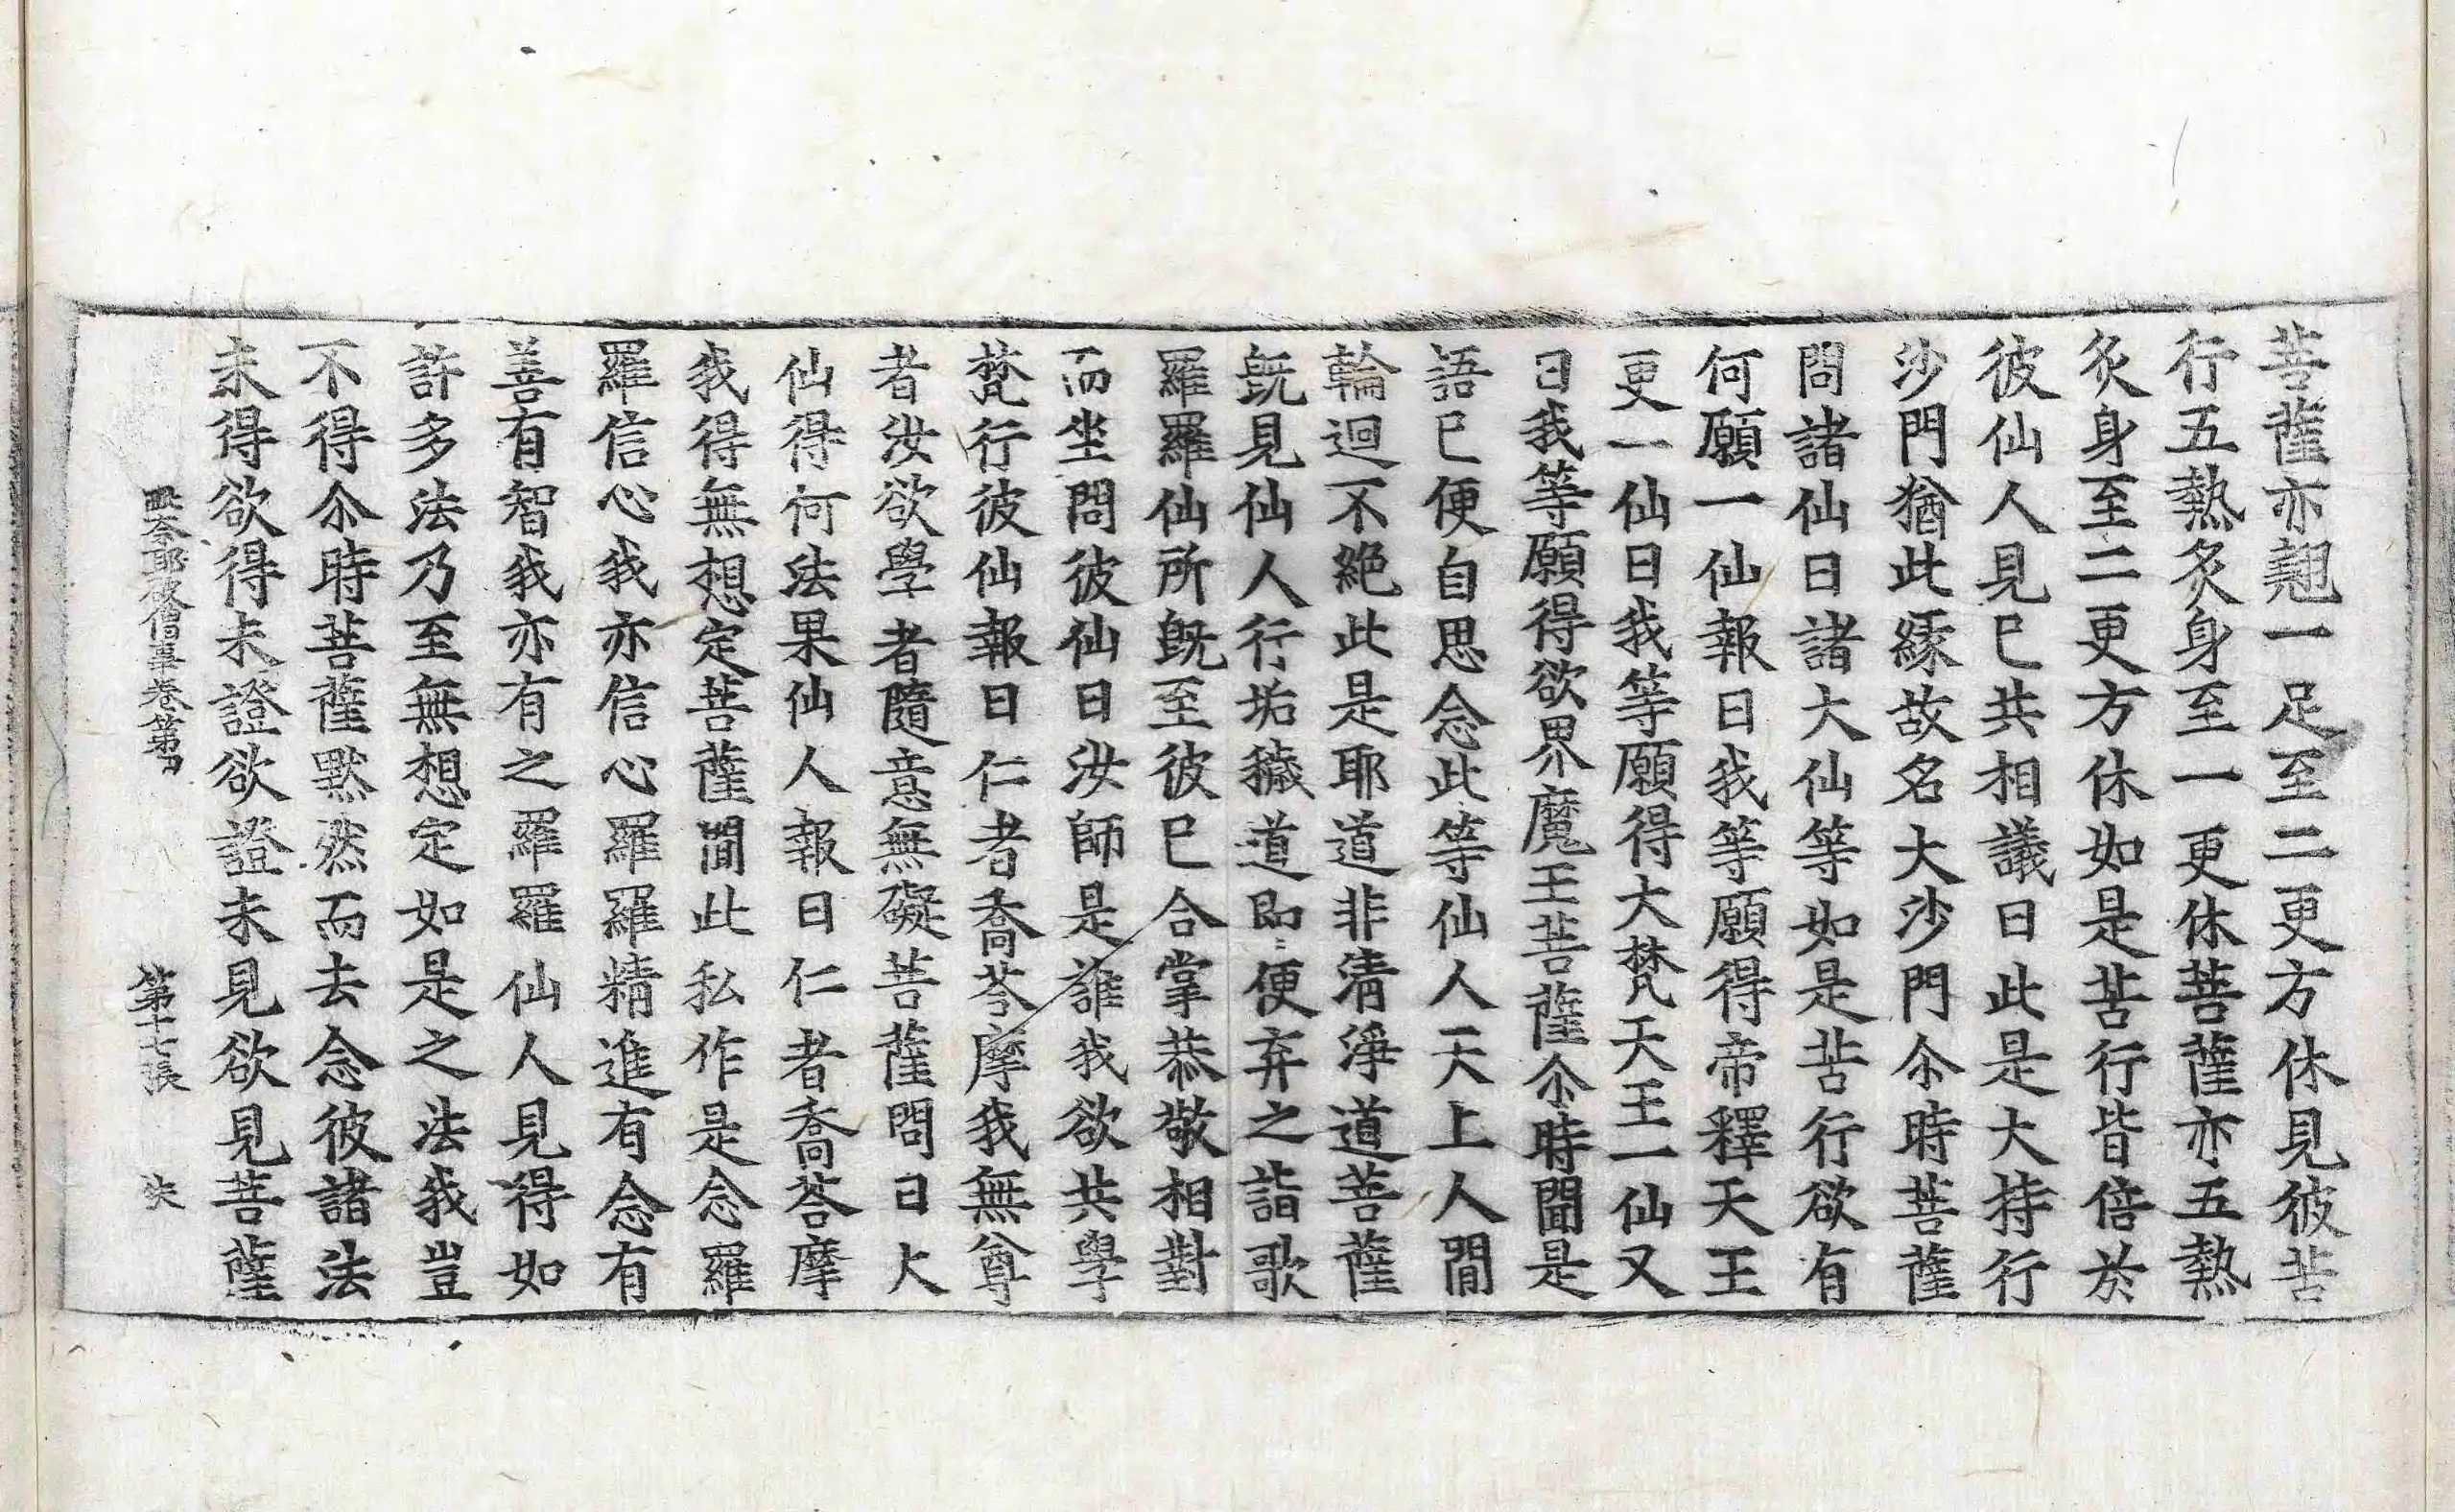 菩薩亦翹一足至二更方休見彼苦
行五熱炙身至一更休菩薩亦五熱
炙身至二更方休如是苦行皆倍於
彼仙人見已共相議曰此是大持行
沙門猶此緣故名大沙門尒時菩薩
問諸仙曰諸大仙等如是苦行欲有
何願一仙報曰我等願得帝釋天王
更一仙曰我等願得大梵天王一仙又
曰我等願得欲界魔王菩薩尒時聞是
語已便自思念此等仙人天上人間
輪迴不絕此是耶道非清淨道菩薩
旣見仙人行垢穢道即便弃之詣歌
羅羅仙所旣至彼已合掌恭敬相對
而坐問彼仙曰汝師是誰我欲共學
梵行彼仙報曰仁者喬荅摩我無尊
者汝欲學者隨意無礙菩薩問曰大
仙得何法果仙人報曰仁者喬荅摩
我得無想定菩薩聞此私作是念羅
羅信心我亦信心羅羅精進有念有
善有智我亦有之羅羅仙人見得如
許多法乃至無想定如是之法我豈
不得尒時菩薩默然而去念彼諸法
未得欲得未證欲證未見欲見菩薩
毗奈耶破僧事卷第四 第十七張